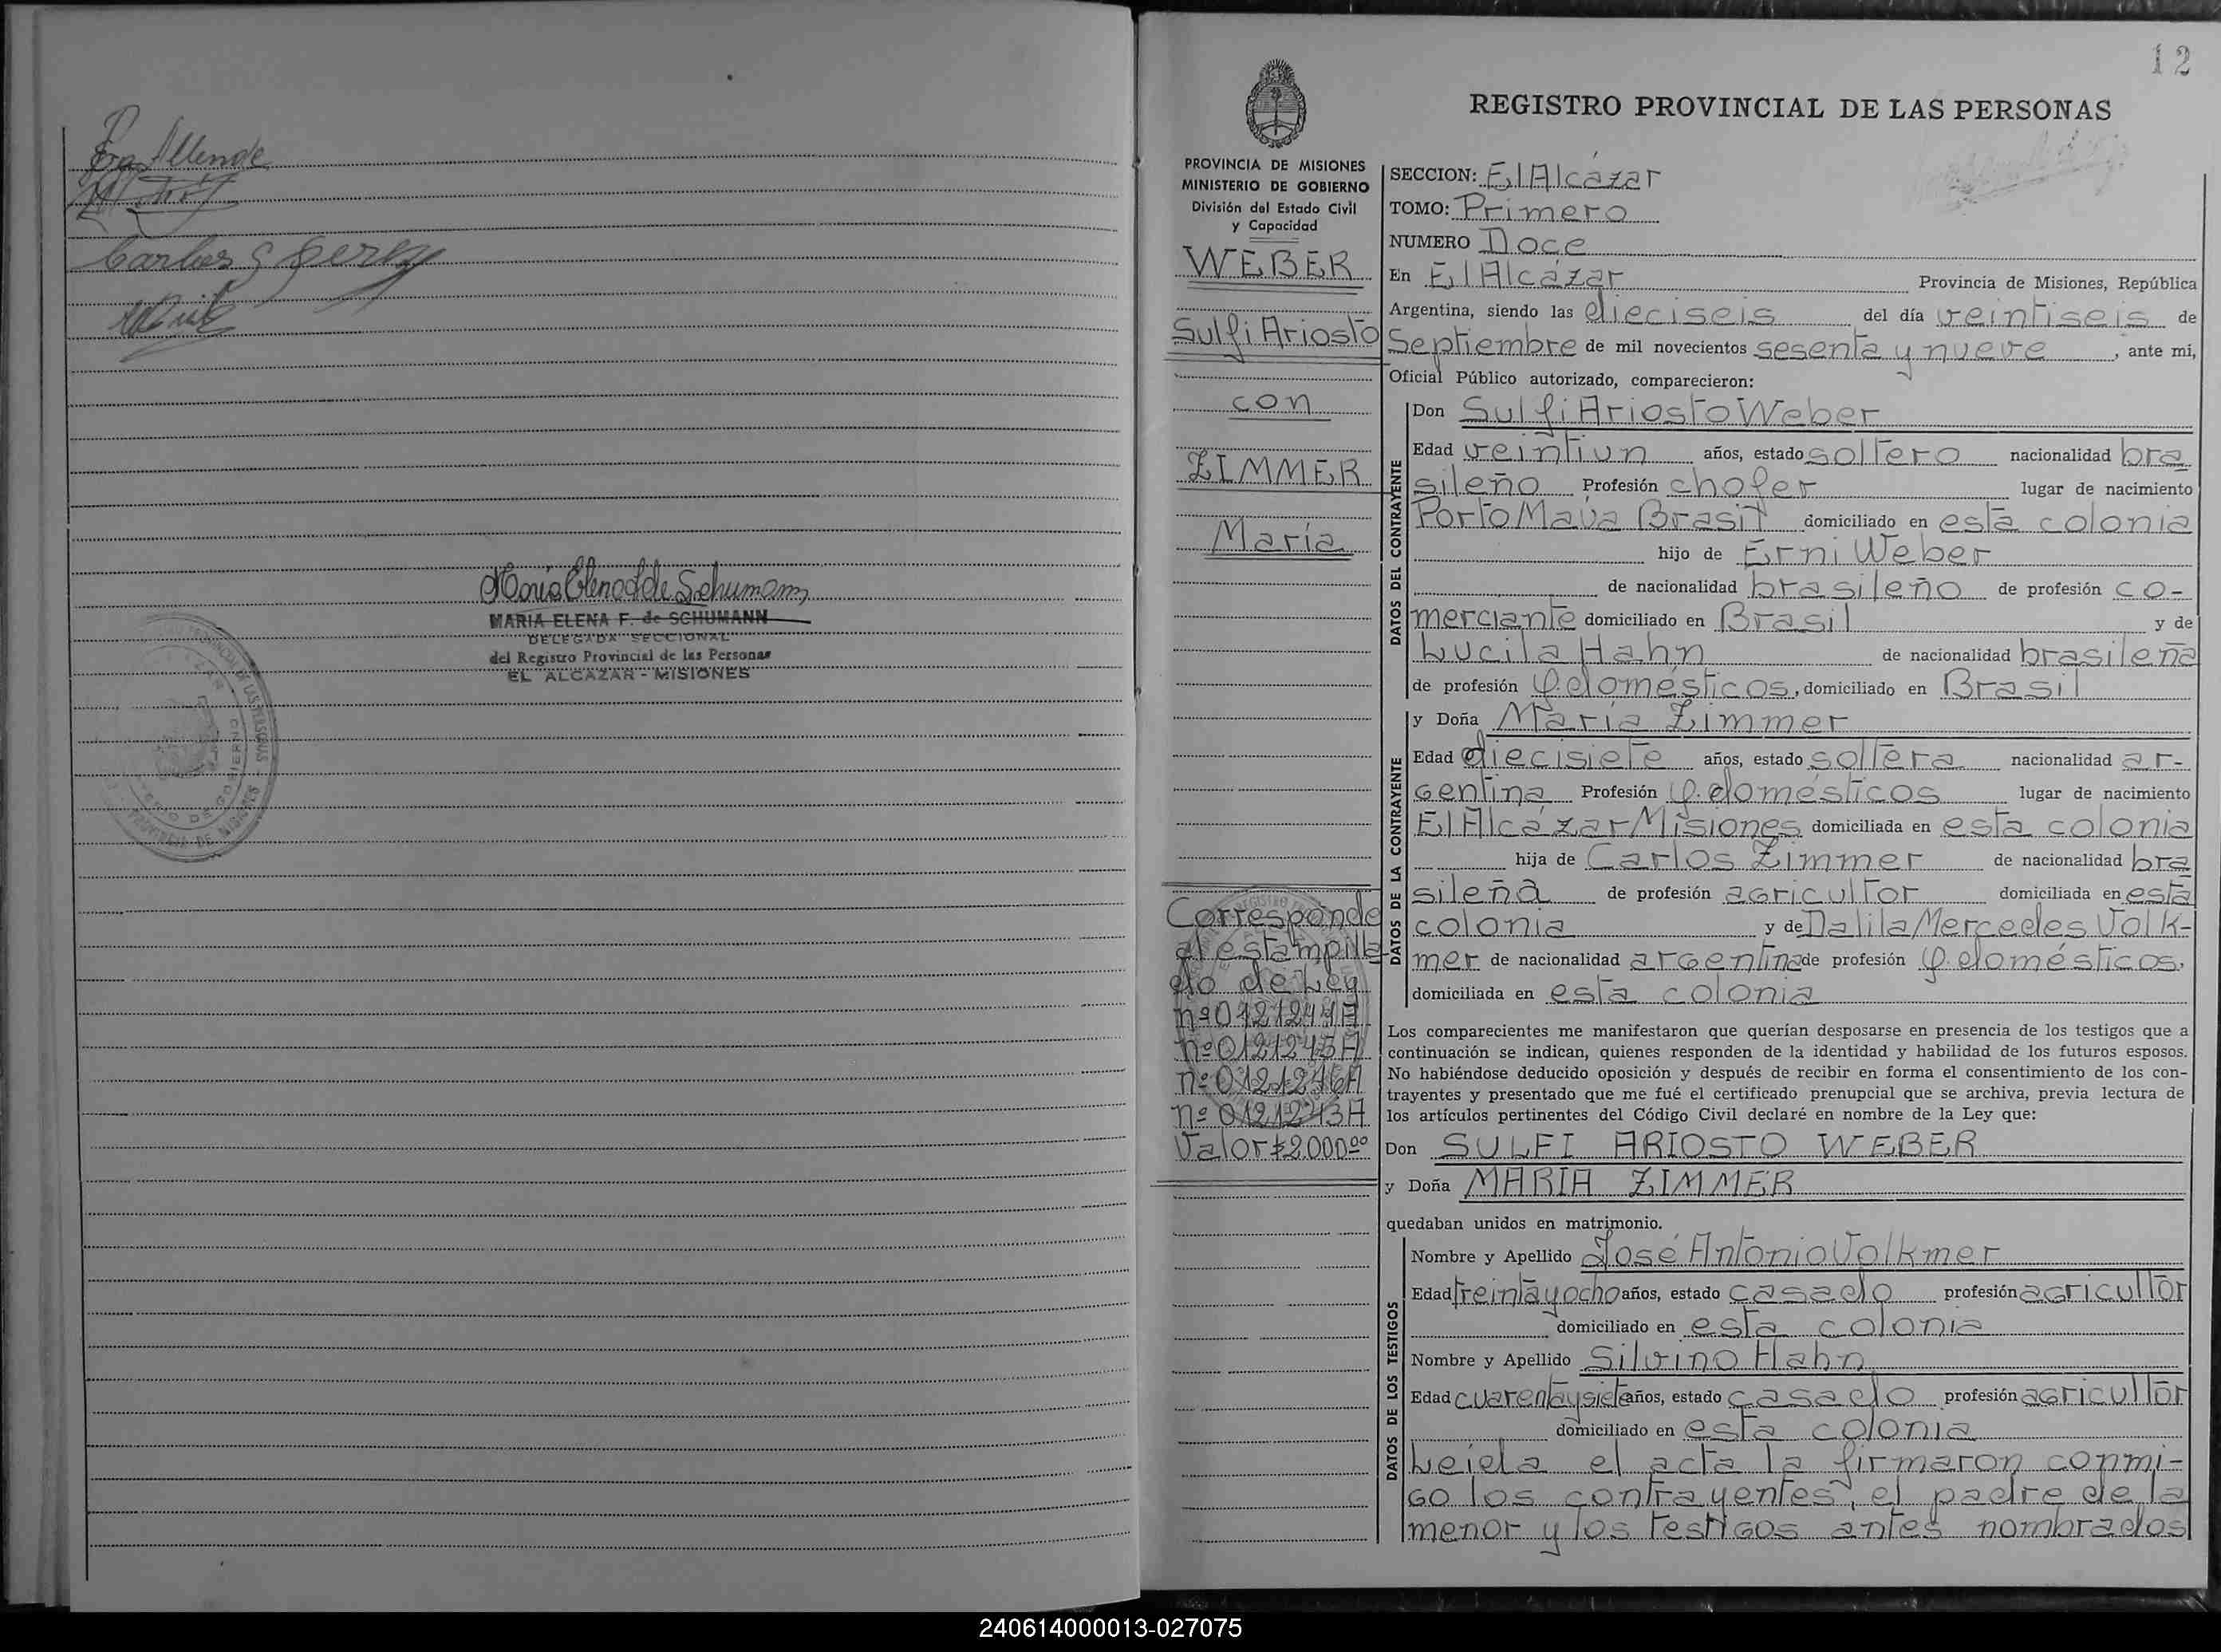 Allende
Carlos G Perez
Maria Elena F de Schumann
MARIA ELENA F. de SCHUMANN
DELEGADA SECCIONAL
del Registro Provincial de las Personas
EL ALCAZAR - MISIONES
12
REGISTRO PROVINCIAL DE LAS PERSONAS
PROVINCIA DE MISIONES
MINISTERIO DE GOBIERNO
División del Estado Civil
y Capacidad
WEBER
Sulfi Ariosto
con
ZIMMER
María
Corresponde
al estampilla
do de Ley
nº 0121244A
nº 0121245A
nº 0121246A
nº 0121243A
Valor $2.000⁰⁰
SECCION: El Alcázar
TOMO: Primero
NUMERO Doce
En El Alcázar Provincia de Misiones, República
Argentina, siendo las dieciseis del día veintiseis de
Septiembre de mil novecientos sesenta y nueve, ante mi,
Oficial Público autorizado, comparecieron:
DATOS DEL CONTRAYENTE
Don Sulfi Ariosto Weber
Edad veintiun años, estado soltero nacionalidad bra
sileño Profesión chofer lugar de nacimiento
Porto Maúa Brasil domiciliado en esta colonia
hijo de Erni Weber
de nacionalidad brasileño de profesión co-
merciante domiciliado en Brasil y de
Lucila Hahn de nacionalidad brasileña
de profesión q. domésticos, domiciliado en Brasil
DATOS DE LA CONTRAYENTE
y Doña María Zimmer
Edad diecisiete años, estado soltera nacionalidad ar-
gentina Profesión q. domésticos lugar de nacimiento
El Alcázar Misiones domiciliada en esta colonia
hija de Carlos Zimmer de nacionalidad bra
sileña de profesión agricultor domiciliada en esta
colonia y de Dalila Mercedes Volk-
mer de nacionalidad argentina de profesión q. domésticos,
domiciliada en esta colonia
Los comparecientes me manifestaron que querían desposarse en presencia de los testigos que a
continuación se indican, quienes responden de la identidad y habilidad de los futuros esposos.
No habiéndose deducido oposición y después de recibir en forma el consentimiento de los con-
trayentes y presentado que me fué el certificado prenupcial que se archiva, previa lectura de
los artículos pertinentes del Código Civil declaré en nombre de la Ley que:
Don SULFI ARIOSTO WEBER
y Doña MARIA ZIMMER
quedaban unidos en matrimonio.
DATOS DE LOS TESTIGOS
Nombre y Apellido José Antonio Volkmer
Edad treinta y ocho años, estado casado profesión agricultor
domiciliado en esta colonia
Nombre y Apellido Silvino Hahn
Edad cuarenta y siete años, estado casado profesión agricultor
domiciliado en esta colonia
Leída el acta la firmaron conmi-
go los contrayentes, el padre de la
menor y los testigos antes nombrados
240614000013-027075